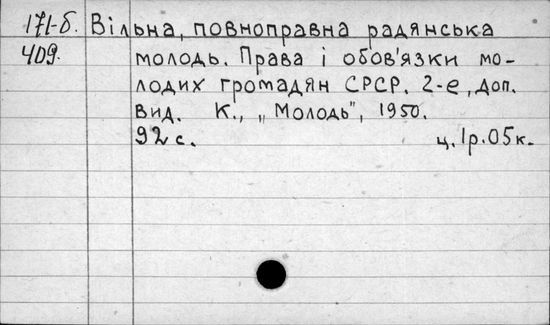 171-б. Вільна, повноправна радянська
409. молодь. Права і обов'язки мо-
лодих громадян СРСР. 2-е, доп.
вид. К., „Молодь", 1950.
92 с. ц. 1р. 05к.